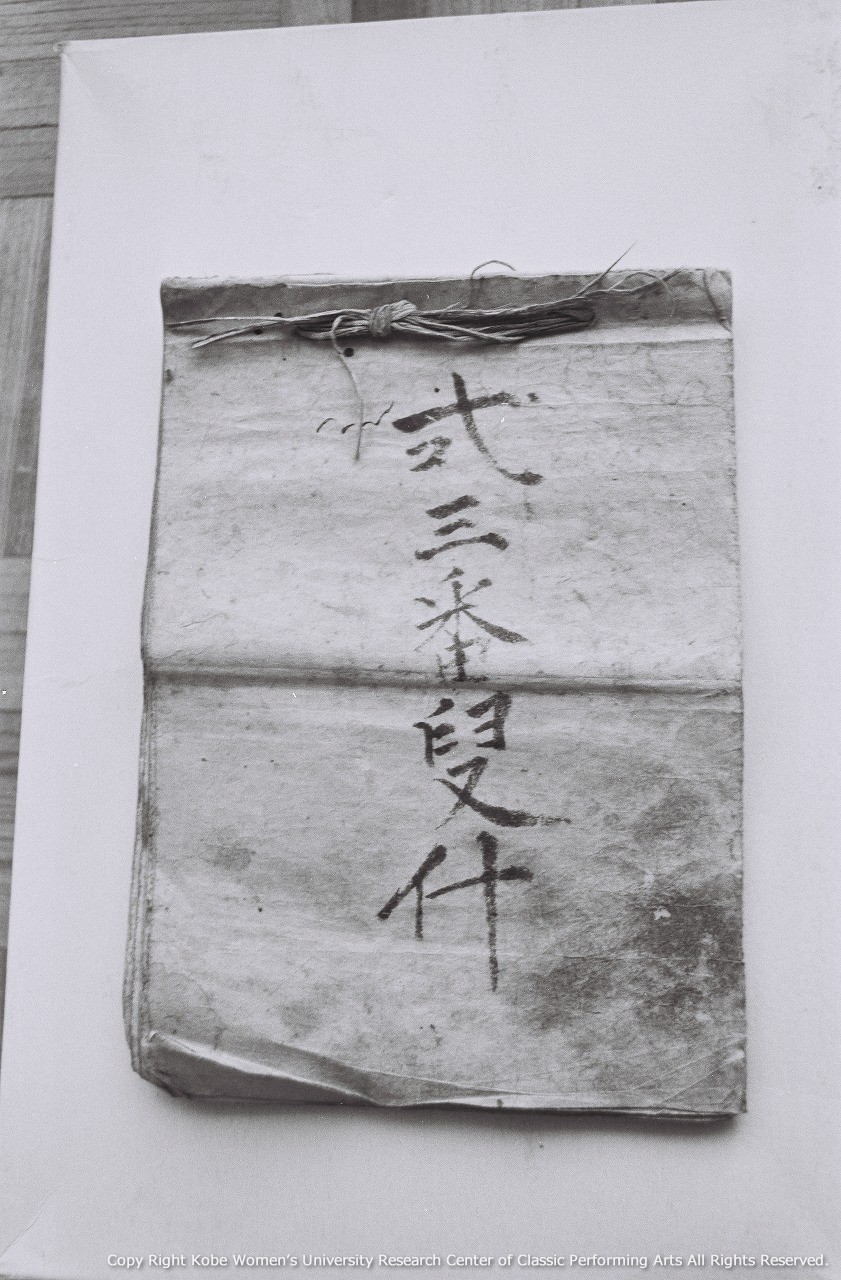 式三番叟什
Copy Right Kobe Women's University Research Center of Classic Performing Arts All Rights Reserved.